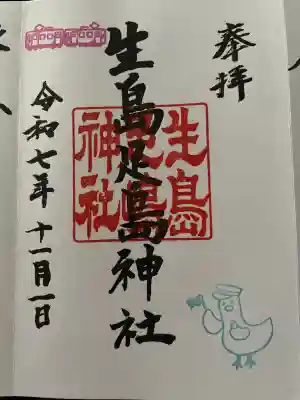 奉拝
生島足島神社
生島
足島
神社
令和七年十一月一日